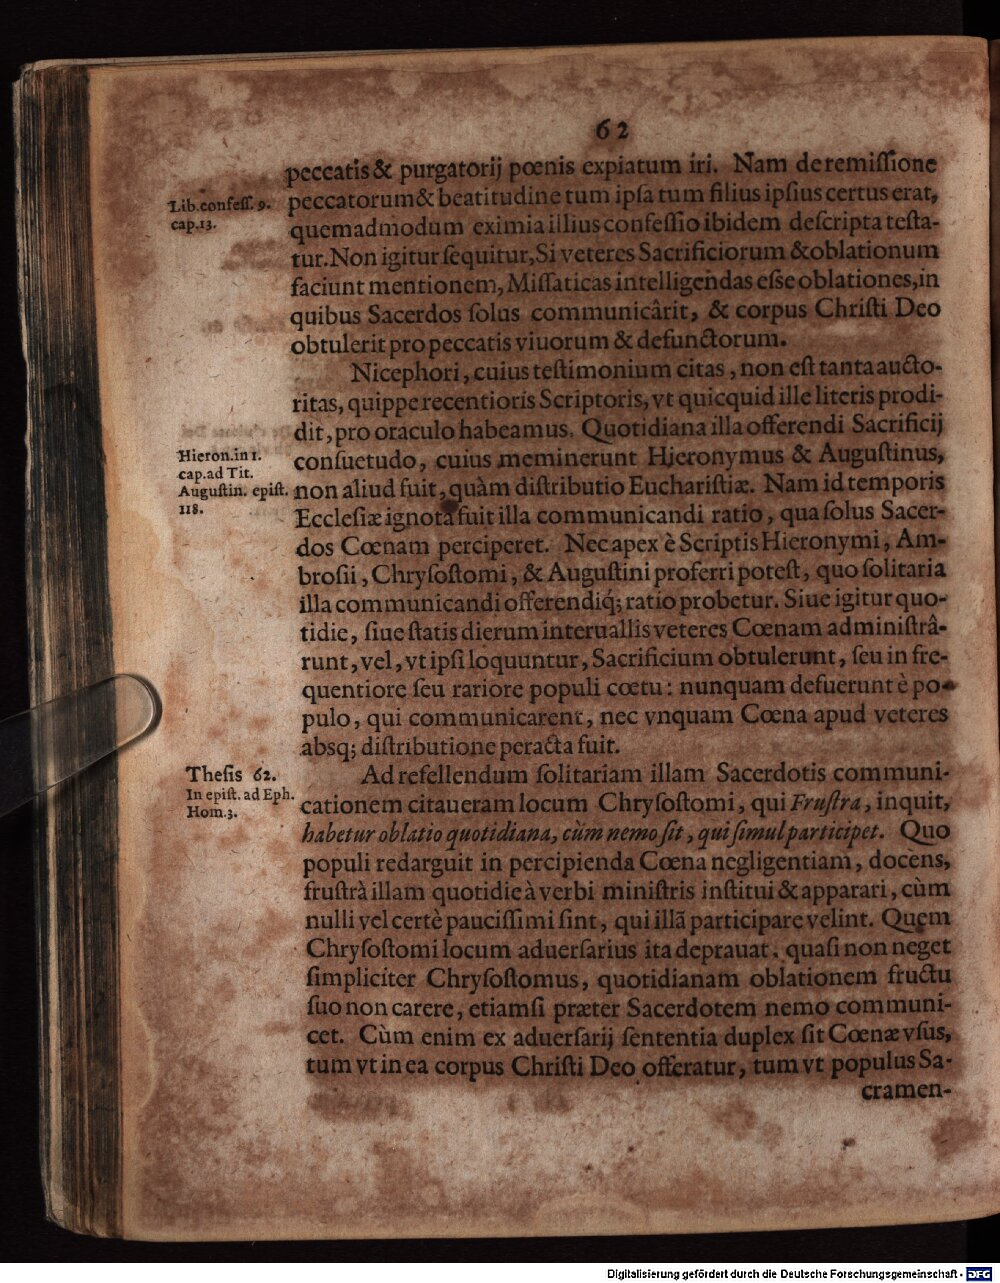 62
peccatis & purgatorij pœnis expiatum iri. Nam de remiſſione
Lib. confeſſ. 9.
cap. 13.
peccatorum & beatitudine tum ipſa tum filius ipſius certus erat,
quemadmodum eximia illius confeſſio ibidem deſcripta teſta-
tur. Non igitur ſequitur, Si veteres Sacrificiorum & oblationum
faciunt mentionem, Miſſaticas intelligendas eſse oblationes, in
quibus Sacerdos ſolus communicârit, & corpus Chriſti Deo
obtulerit pro peccatis viuorum & defunctorum.
Nicephori, cuius teſtimonium citas, non eſt tanta aucto-
ritas, quippe recentioris Scriptoris, vt quicquid ille literis prodi-
dit, pro oraculo habeamus. Quotidiana illa offerendi Sacrificij
Hieron. in 1.
cap. ad Tit.
Auguſtin. epiſt.
118.
conſuetudo, cuius meminerunt Hieronymus & Auguſtinus,
non aliud fuit, quàm diſtributio Euchariſtiæ. Nam id temporis
Eccleſiæ ignota fuit illa communicandi ratio, qua ſolus Sacer-
dos Cœnam perciperet. Nec apex è Scriptis Hieronymi, Am-
broſii, Chryſoſtomi, & Auguſtini proferri poteſt, quo ſolitaria
illa communicandi offerendiq́; ratio probetur. Siue igitur quo-
tidie, ſiue ſtatis dierum interuallis veteres Cœnam adminiſtrâ-
runt, vel, vt ipſi loquuntur, Sacrificium obtulerunt, ſeu in fre-
quentiore ſeu rariore populi cœtu: nunquam defuerunt è po-
pulo, qui communicarent, nec vnquam Cœna apud veteres
absq; diſtributione peracta fuit.
Theſis 62.
In epiſt. ad Eph.
Hom. 3.
Ad refellendum ſolitariam illam Sacerdotis communi-
cationem citaueram locum Chryſoſtomi, qui Fruſtra, inquit,
habetur oblatio quotidiana, cùm nemo ſit, qui ſimul participet. Quo
populi redarguit in percipienda Cœna negligentiam, docens,
fruſtrà illam quotidie à verbi miniſtris inſtitui & apparari, cùm
nulli vel certè pauciſſimi ſint, qui illã participare velint. Quem
Chryſoſtomi locum aduerſarius ita deprauat, quaſi non neget
ſimpliciter Chryſoſtomus, quotidianam oblationem fructu
ſuo non carere, etiamſi præter Sacerdotem nemo communi-
cet. Cùm enim ex aduerſarij ſententia duplex ſit Cœnæ vſus,
tum vt in ea corpus Chriſti Deo offeratur, tum vt populus Sa-
cramen-
Digitalisierung gefördert durch die Deutsche Forschungsgemeinschaft - DFG